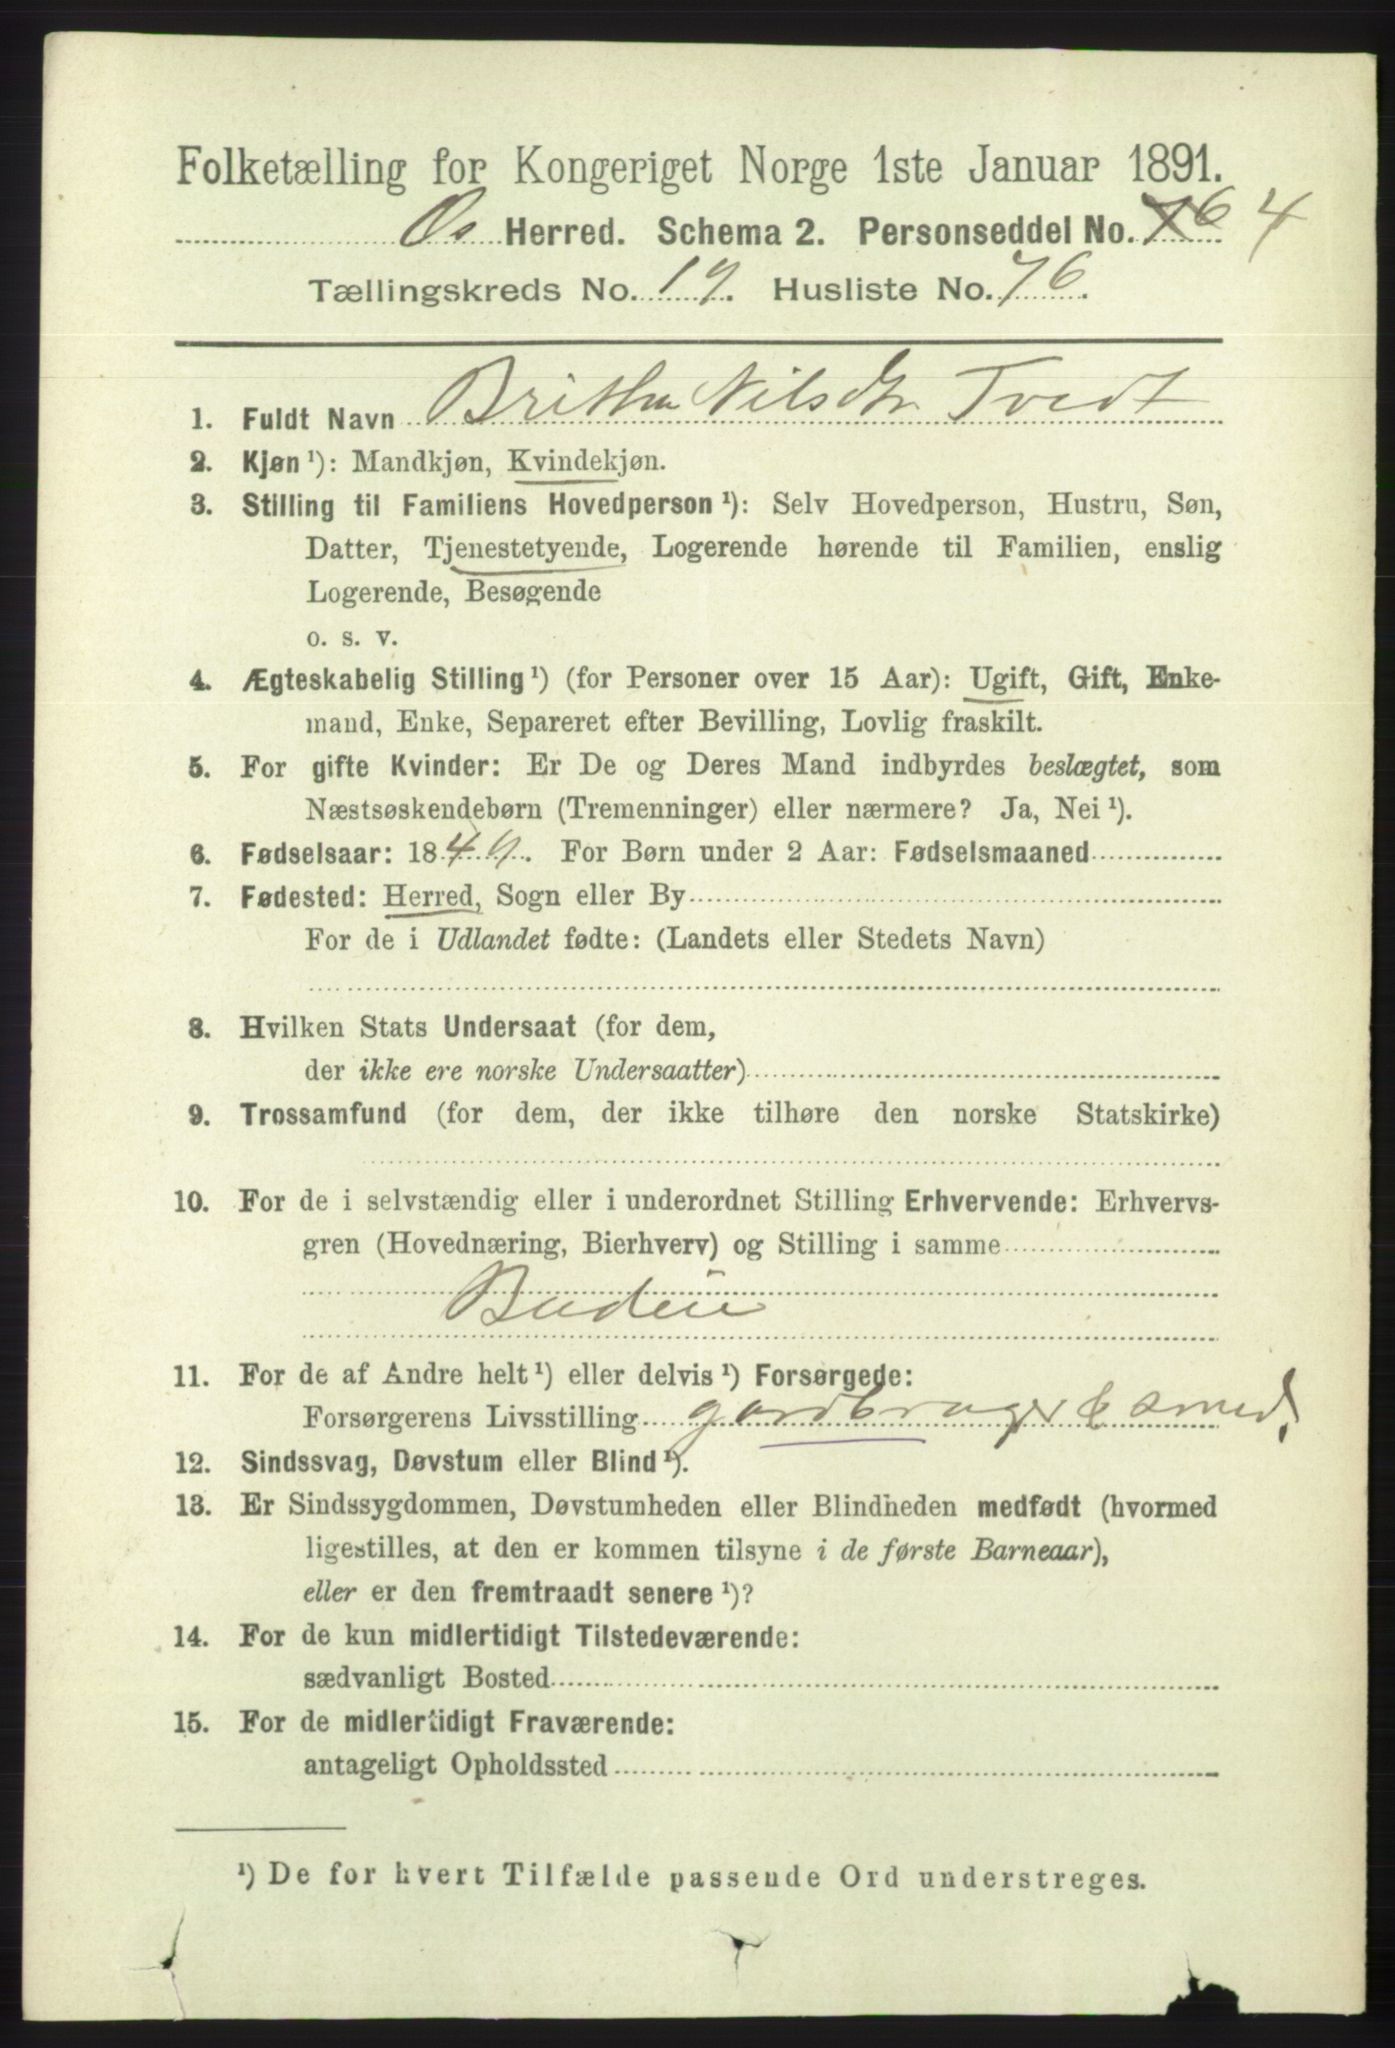 Folketælling for Kongeriget Norge 1ste Januar 1891.
Os Herred. Schema 2. Personseddel No. 76 4
Tællingskreds No. 19. Husliste No. 76.
1. Fuldt Navn Britha Nilsdtr Tvedt
2. Kjøn ¹): Mandkjøn, Kvindekjøn.
3. Stilling til Familiens Hovedperson ¹): Selv Hovedperson, Hustru, Søn,
Datter, Tjenestetyende, Logerende hørende til Familien, enslig
Logerende, Besøgende
o. s. v.
4. Ægteskabelig Stilling ¹) (for Personer over 15 Aar): Ugift, Gift, Enke-
mand, Enke, Separeret efter Bevilling, Lovlig fraskilt.
5. For gifte Kvinder: Er De og Deres Mand indbyrdes beslægtet, som
Næstsøskendebørn (Tremenninger) eller nærmere? Ja, Nei ¹).
6. Fødselsaar: 1849. For Børn under 2 Aar: Fødselsmaaned
7. Fødested: Herred, Sogn eller By
For de i Udlandet fødte: (Landets eller Stedets Navn)
8. Hvilken Stats Undersaat (for dem,
der ikke ere norske Undersaatter)
9. Trossamfund (for dem, der ikke tilhøre den norske Statskirke)
10. For de i selvstændig eller i underordnet Stilling Erhvervende: Erhvervs-
gren (Hovednæring, Bierhverv) og Stilling i samme
Budeie
11. For de af Andre helt ¹) eller delvis ¹) Forsørgede:
Forsørgerens Livsstilling gardbruger & smed.
12. Sindssvag, Døvstum eller Blind ¹).
13. Er Sindssygdommen, Døvstumheden eller Blindheden medfødt (hvormed
ligestilles, at den er kommen tilsyne i de første Barneaar),
eller er den fremtraadt senere ¹)?
14. For de kun midlertidigt Tilstedeværende:
sædvanligt Bosted
15. For de midlertidigt Fraværende:
antageligt Opholdssted
¹) De for hvert Tilfælde passende Ord understreges.